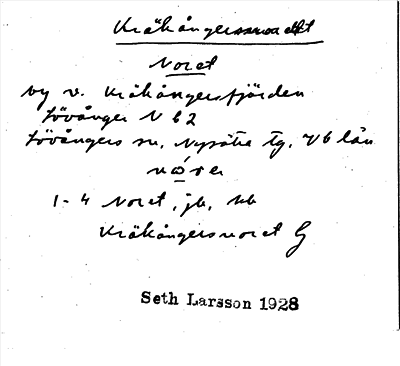 Kräkångersnoret
Noret
by v. Kräkångersfjärden
Lövånger N 62
Lövångers sn, Nysätra tg, Vb län
nóre
1-4 Noret, jb, kb
Kräkångersnoret G
Seth Larsson 1928